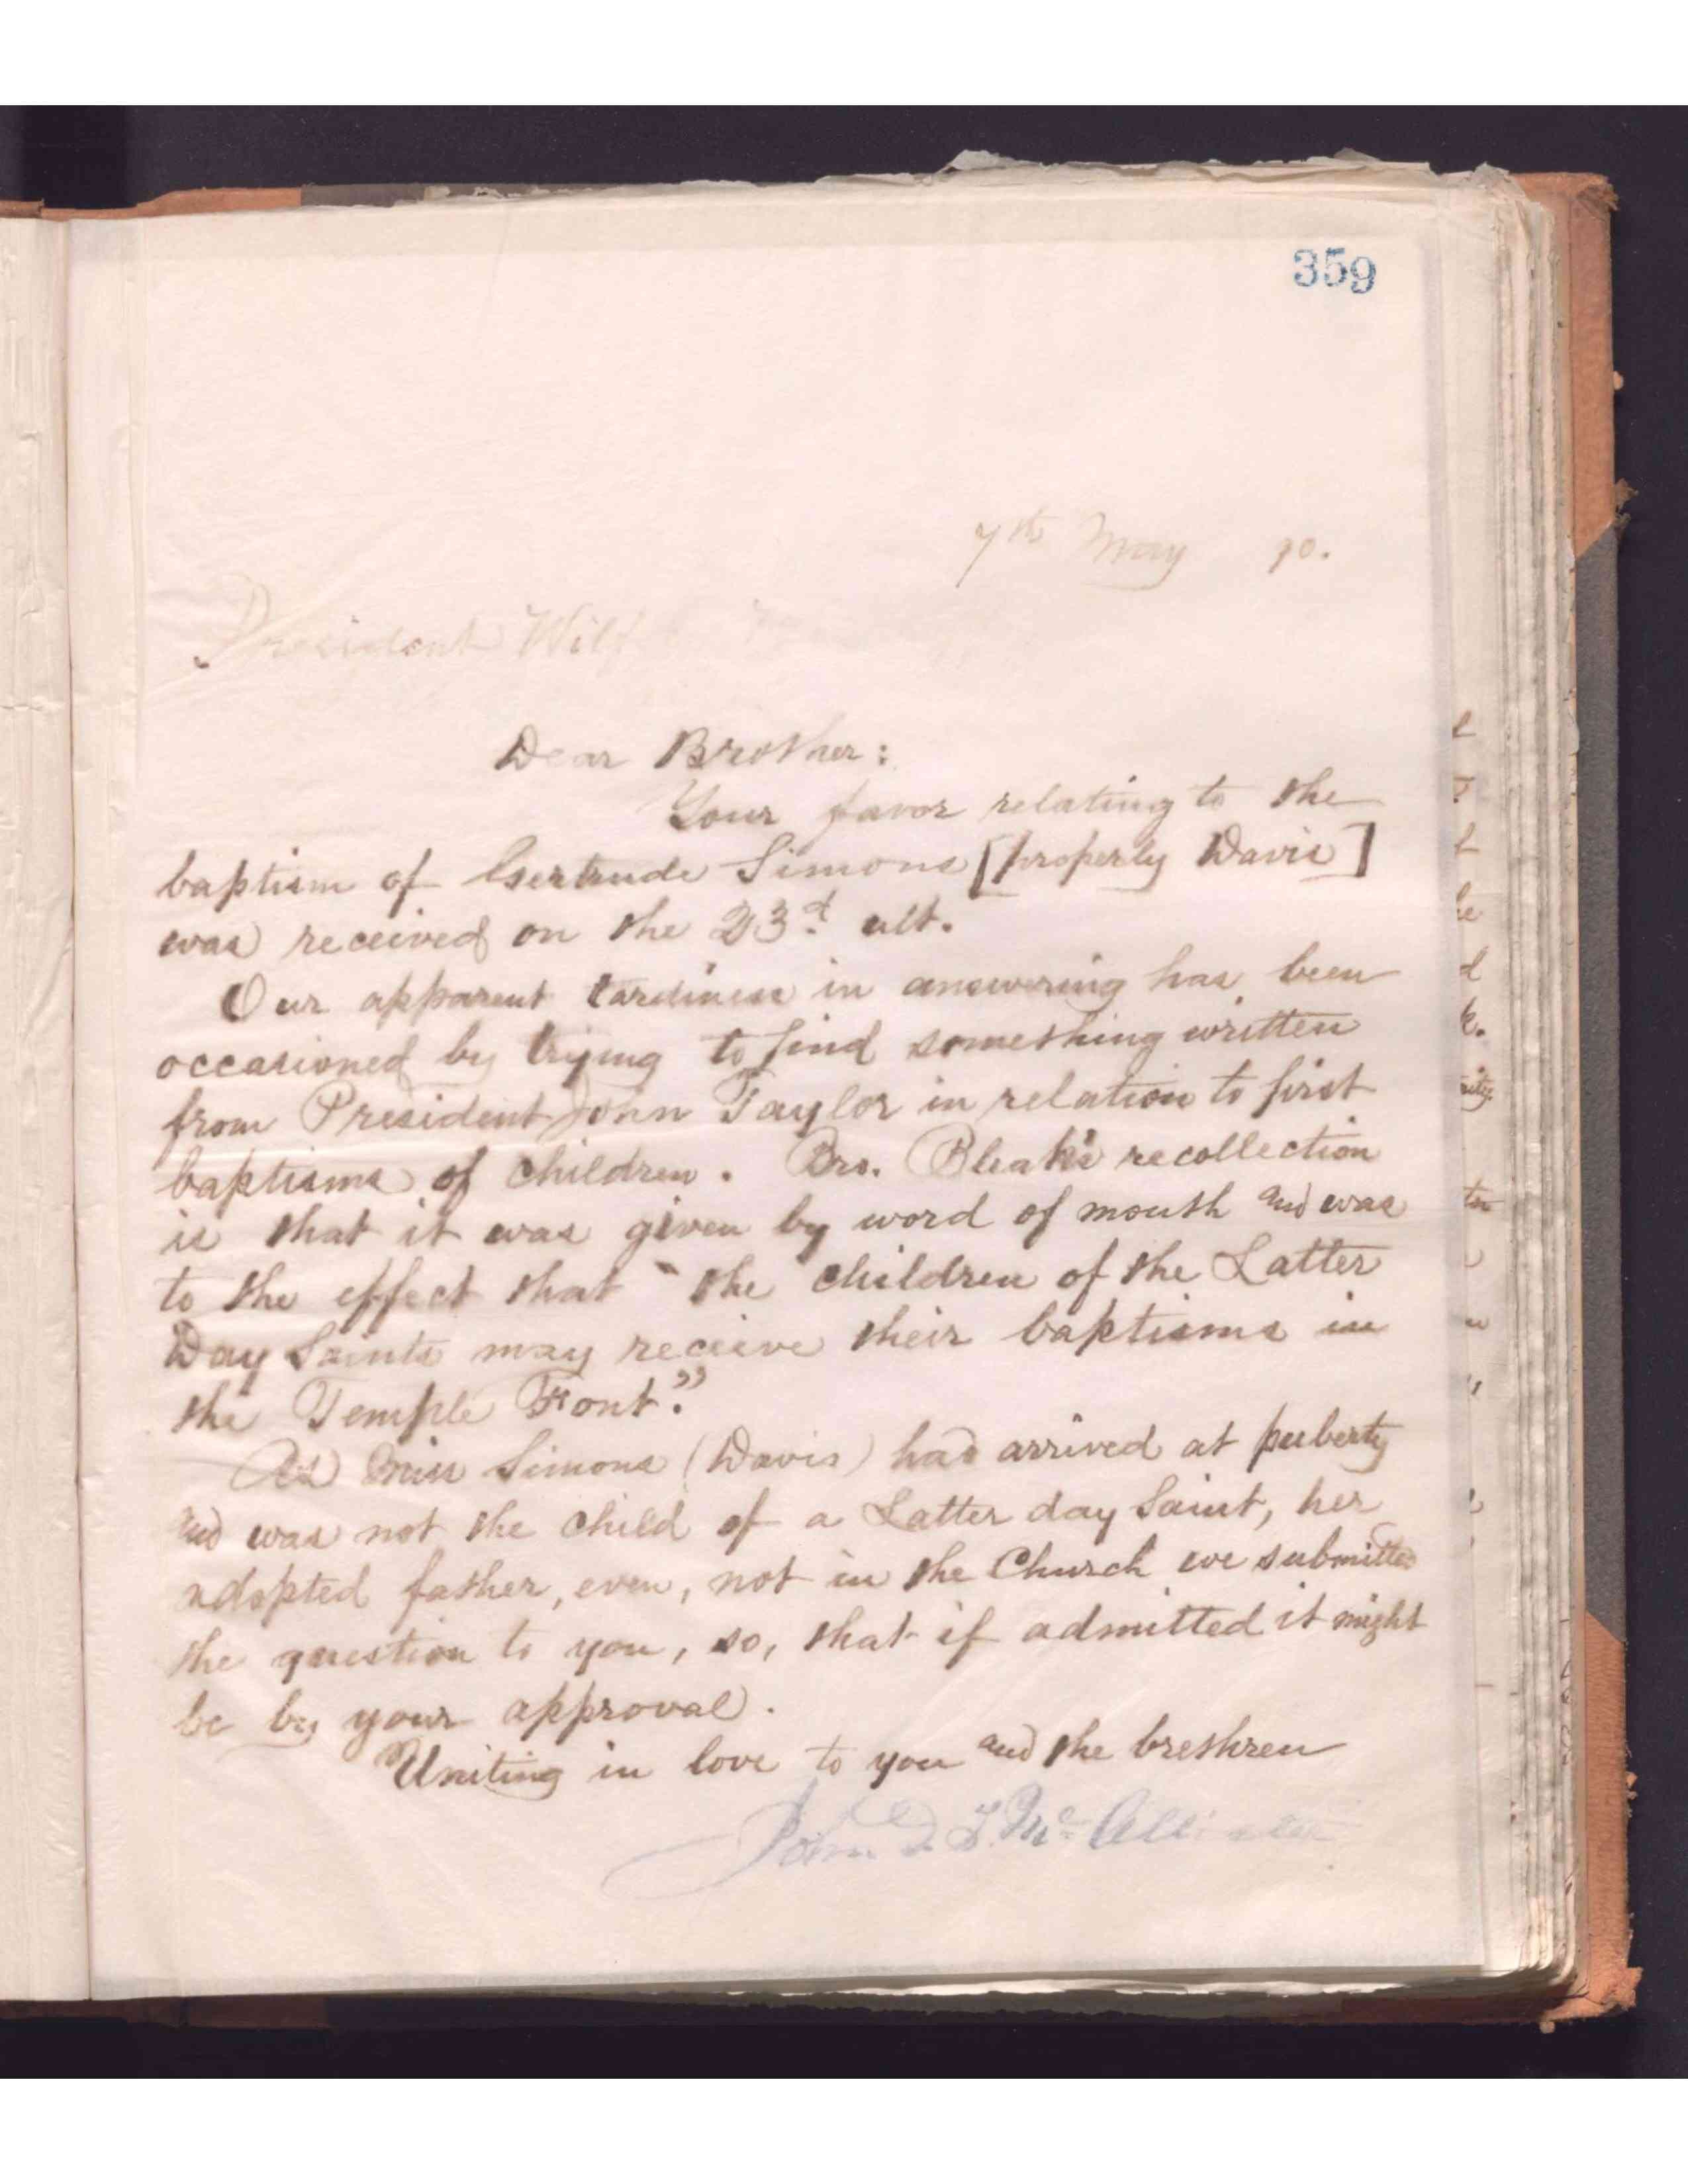 359
7th May 90.
President Wilf
Dear Brother:
Your favor relating to the
baptism of Gertrude Simons [properly Davis]
was received on the 23d. ult.
Our apparent tardiness in answering has been
occasioned by trying to find something written
from President John Taylor in relation to first
baptisms of children. Bro. Bleak's recollection
is that it was given by word of mouth and was
to the effect that "the children of the Latter
Day Saints may receive their baptisms in
the Temple Font."
As Miss Simons (Davis) had arrived at puberty
and was not the child of a Latter day Saint, her
adopted father, even, not in the Church we submitted
the question to you, so, that if admitted it might
be by your approval.
Uniting in love to you and the brethren
John D. T. McAllister